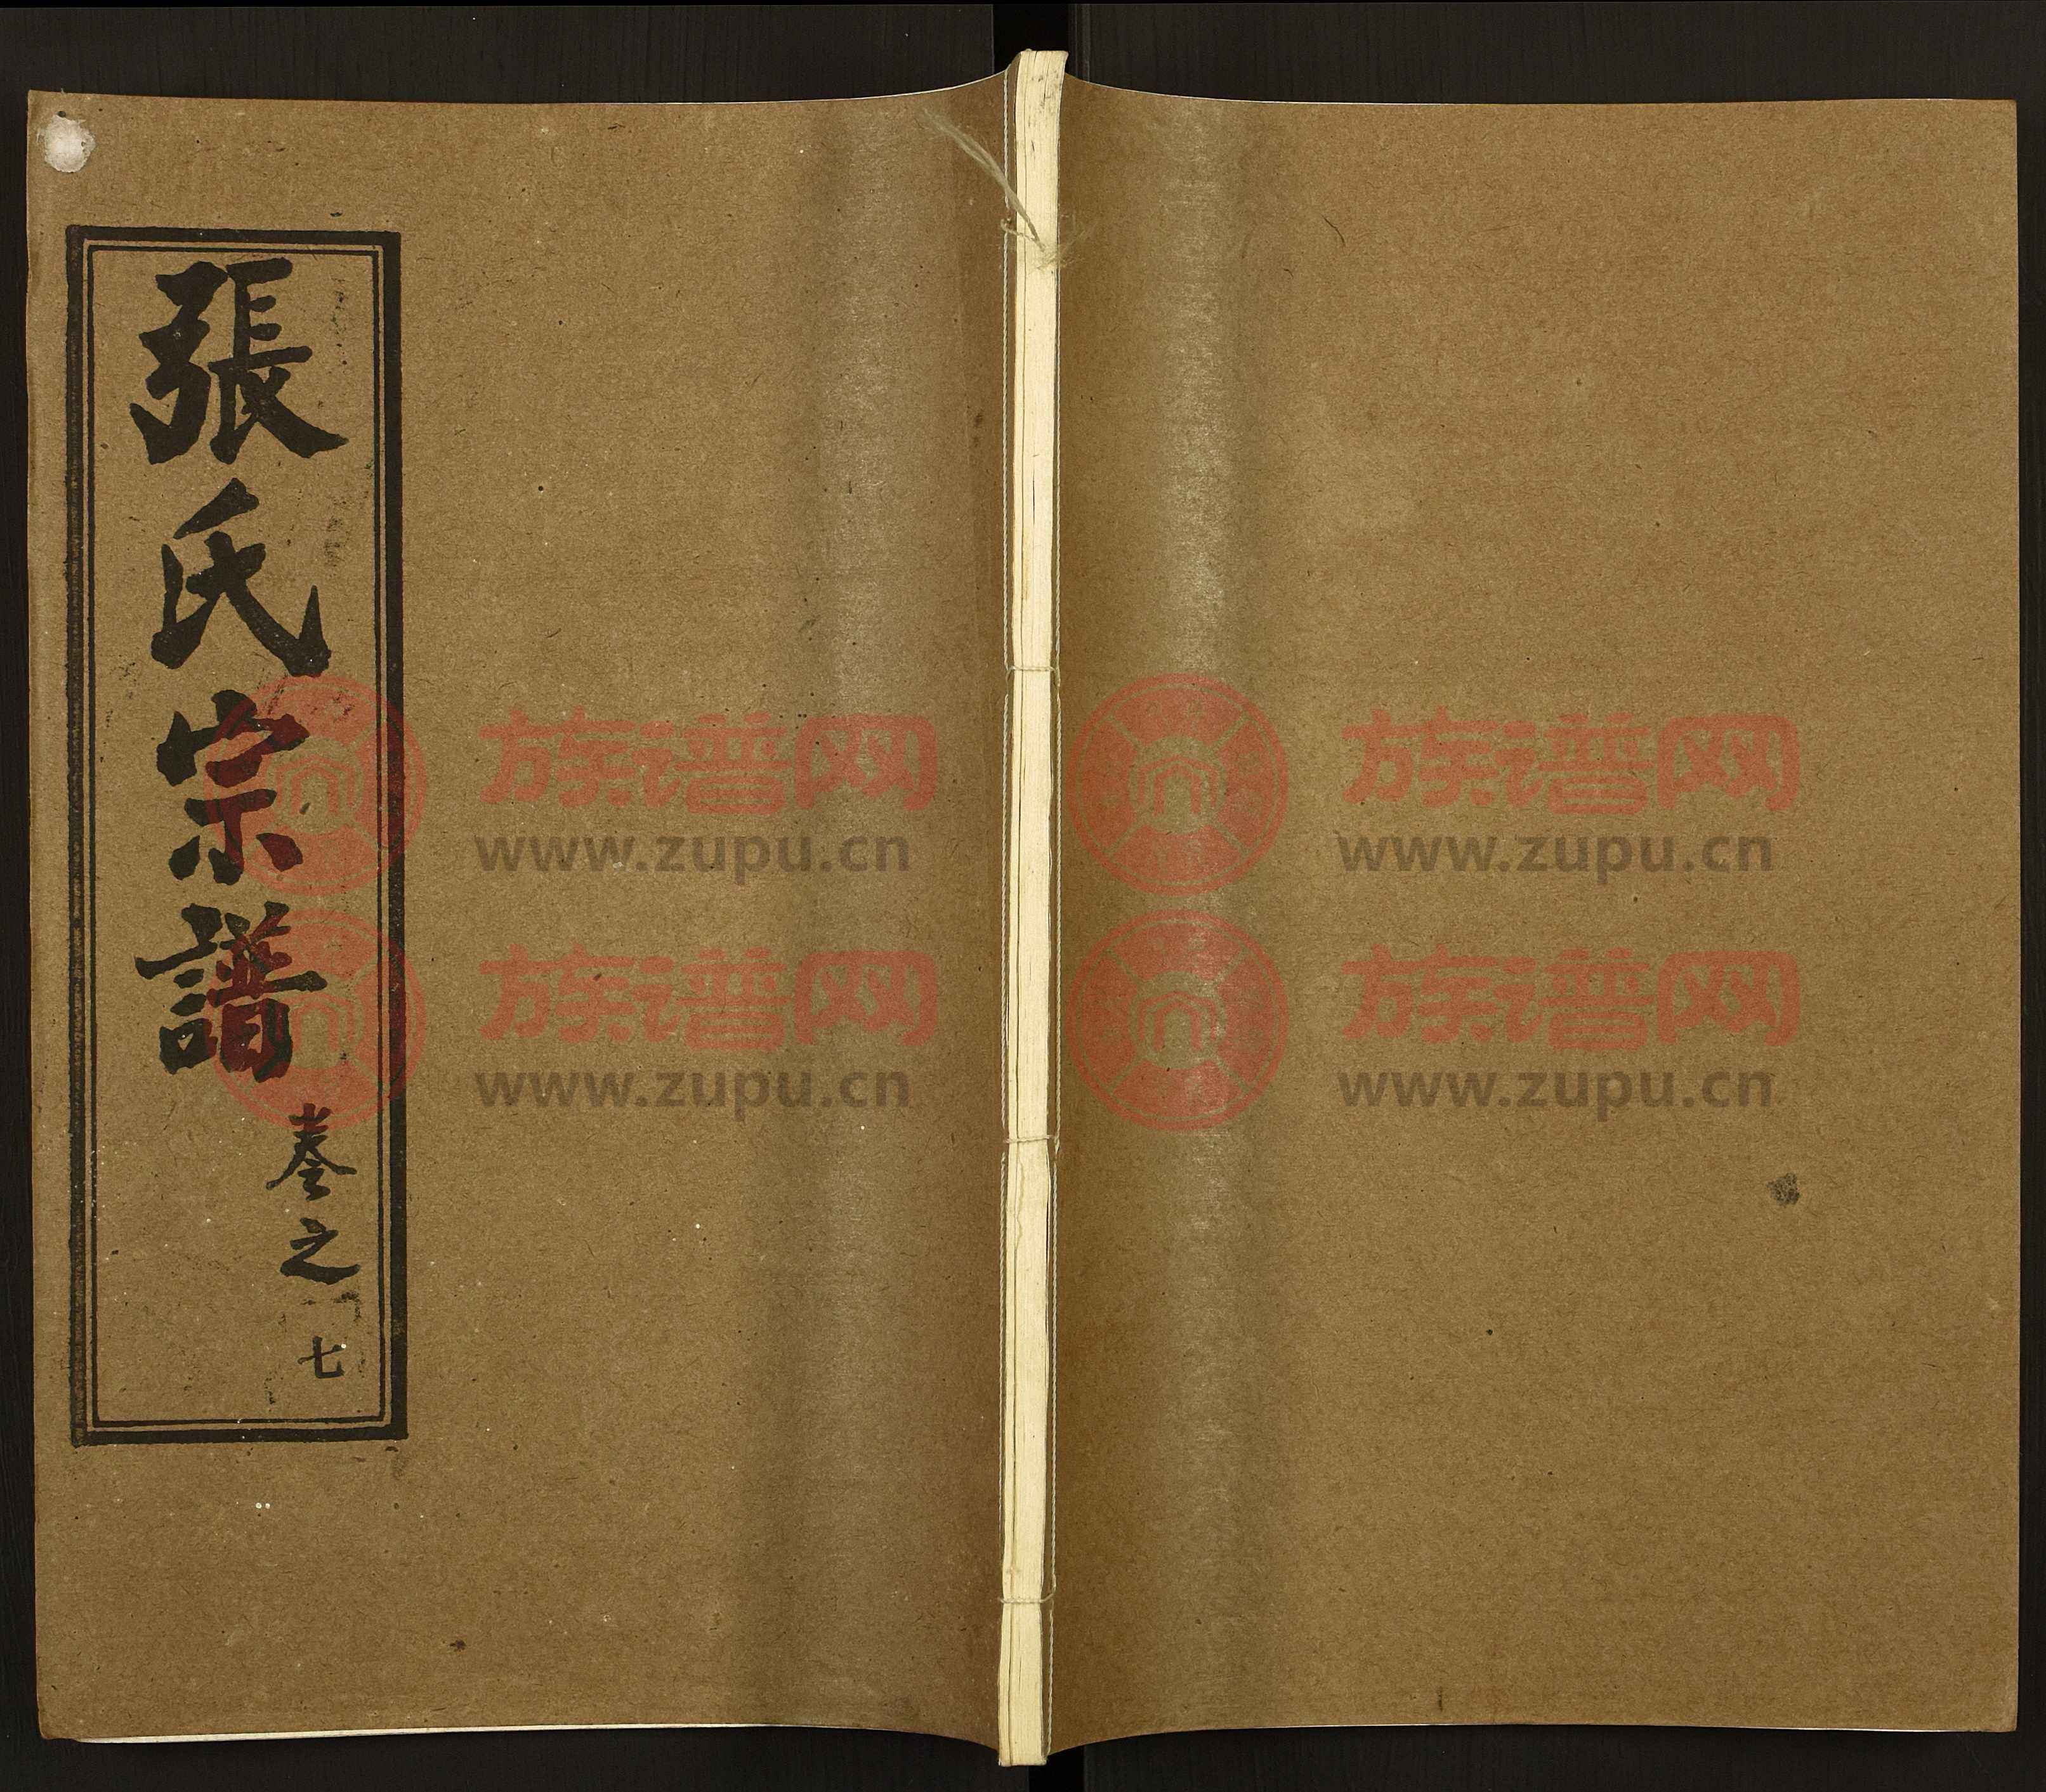 張氏宗譜
卷之
七
族谱网
www.zupu.cn
族谱网
www.zupu.cn
族谱网
www.zupu.cn
族谱网
www.zupu.cn